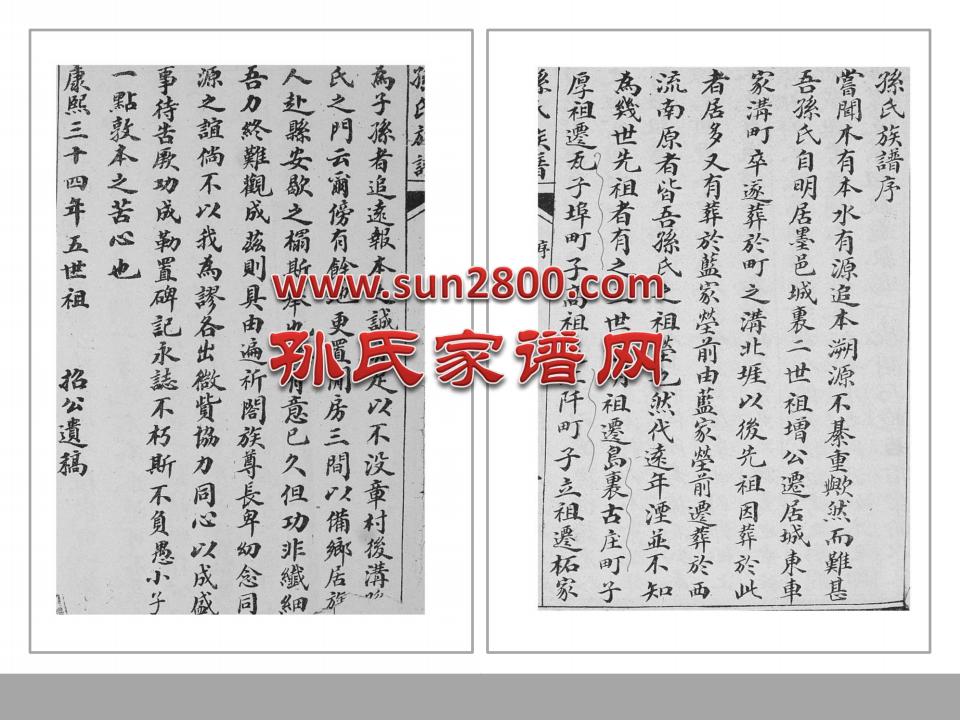 孫氏族譜序
嘗聞木有本水有源追本溯源不綦重歟然而難甚
吾孫氏自明居墨邑城裏二世祖增公遷居城東車
家溝町卒逐葬於町之溝北堐以後先祖因葬於此
者居多又有葬於藍家塋前由藍家塋前遷葬於西
流南原者皆吾孫氏之祖塋也然代遠年湮並不知
為幾世先祖者有之 世 祖遷島裏古庄町子
厚祖遷瓦子埠町子高祖 阡町子立祖遷柘家
孫氏族譜
序
孫氏族譜
為子孫者追遠報本 誠 足以不没章村後溝
氏之門云爾傍有餘地更置閒房三間以備鄉居族
人赴縣安歇之榻斯 有意已久但功非纖細
吾力終難觀成茲則具由遍祈閤族尊長卑幼念同
源之誼倘不以我為謬各出微貲協力同心以成盛
事待告厥功成勒置碑記永誌不朽斯不負愚小子
一點敦本之苦心也
康熙三十四年五世祖 招公遺稿
www.sun2800.com
孙氏家谱网